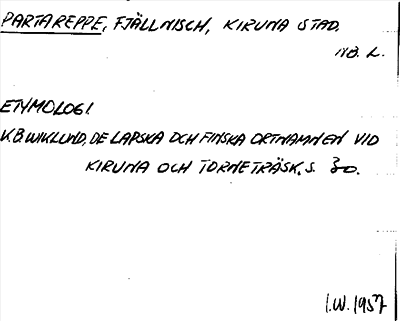 PARTAREPPE, FJÄLLNISCH, KIRUNA STAD,
NB. L.
ETYMOLOGI.
K.B. WIKLUND, DE LAPSKA OCH FINSKA ORTNAMNEN VID
KIRUNA OCH TORNETRÄSK, S. 30.
I.W. 1957